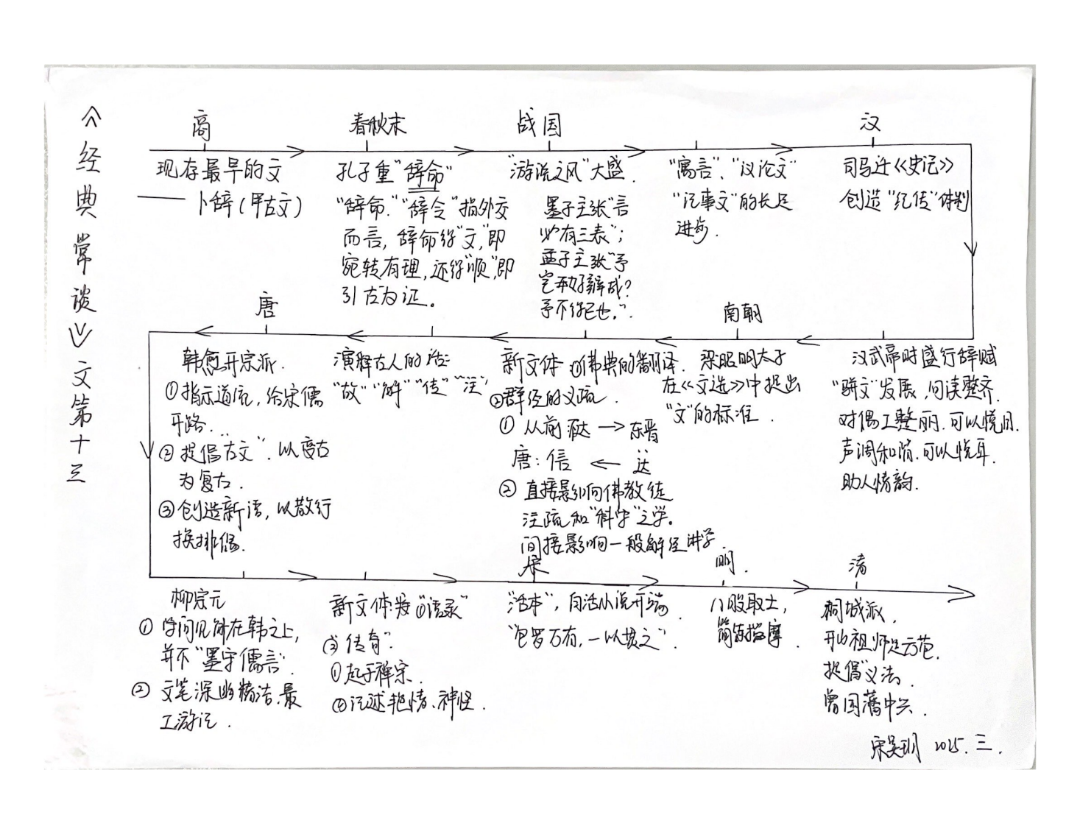 《经典常谈》文第十三
商
现存最早的文
——卜辞(甲古文)
春秋末
孔子重“辞命”
“辞命”“辞令”指外交
而言,辞命得“文”,即
宛转有理,还得“顺”,即
引古为证。
战国
“游说之风”大盛.
墨子主张“言
必有三表”;
孟子主张“予
岂好辩哉?
予不得已也.”.
“寓言”、“议论文”
“记事文”的长足
进步.
汉
司马迁《史记》
创造“纪传”体制
汉武帝时盛行辞赋
“骈文”发展,句读整齐.
对偶工整丽.可以悦目.
声调和谐.可以悦耳.
助人情韵.
南朝
梁昭明太子
在《文选》中提出
“文”的标准.
新文体①佛典的翻译.
②群经的义疏.
① 从前 达→东晋
唐:信 ← 达
② 直接影响佛教徒
注疏和“科分”之学.
间接影响一般解经讲学
演释古人的话:
“故”“解”“传”“注”
唐
韩愈开宗派.
①指示道统,给宋儒
开路.
②提倡“古文”.以变古
为复古.
③创造新语,以散行
换排偶.
柳宗元
① 学问见解在韩之上,
并不“墨守儒言”.
② 文笔深幽精洁.最
工游记.
新文体按①“语录”
②传奇”.
①起于禅宗.
②记述艳情、神怪.
宋
“话本”,白话小说开端
“包罗万有,一以贯之”.
明.
八股取士,
揣摩.
清
桐城派.
开山祖师是方苞.
提倡“义法”.
曾国藩中兴.
2025.三.